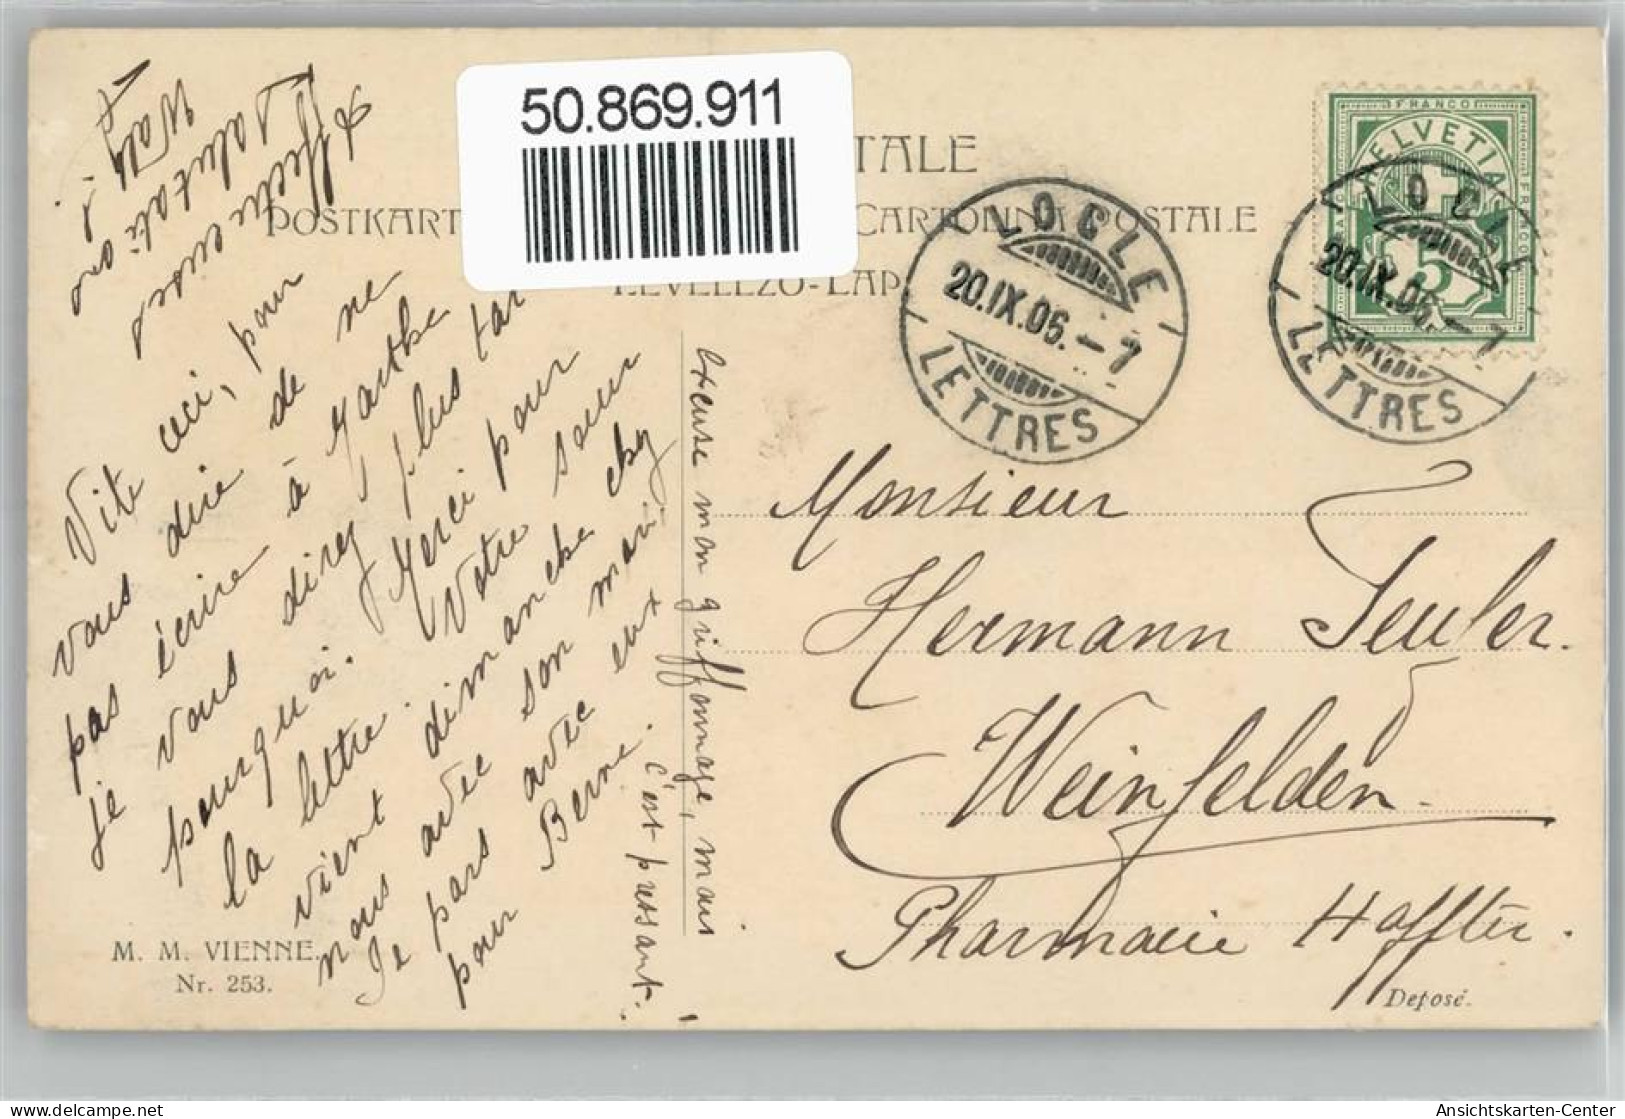 50.869.911
TALE
POSTKART
CARTOLINA POSTALE
LEVELEZŐ-LAP
LOCLE
20.IX.06.-7
LETTRES
FRANCO
HELVETIA
FRANCO
5
LOCLE
20.IX.06.-7
LETTRES
Vite ceci, pour
vous dire de ne
pas écrire à Marthe
je vous direz plus tar
pourquoi. Merci pour
la lettre. Votre sœur
vient dimanche chez
nous avec son mari,
Je pars avec eux
pour Berne.
Affectueuses
Salutations
excuse mon griffonnage, mais
c'est pressant.
Monsieur
Hermann Seuler.
Weinfelden.
Pharmacie Haffter.
M. M. VIENNE.
Nr. 253.
Deposé.
Ansichtskarten-Center